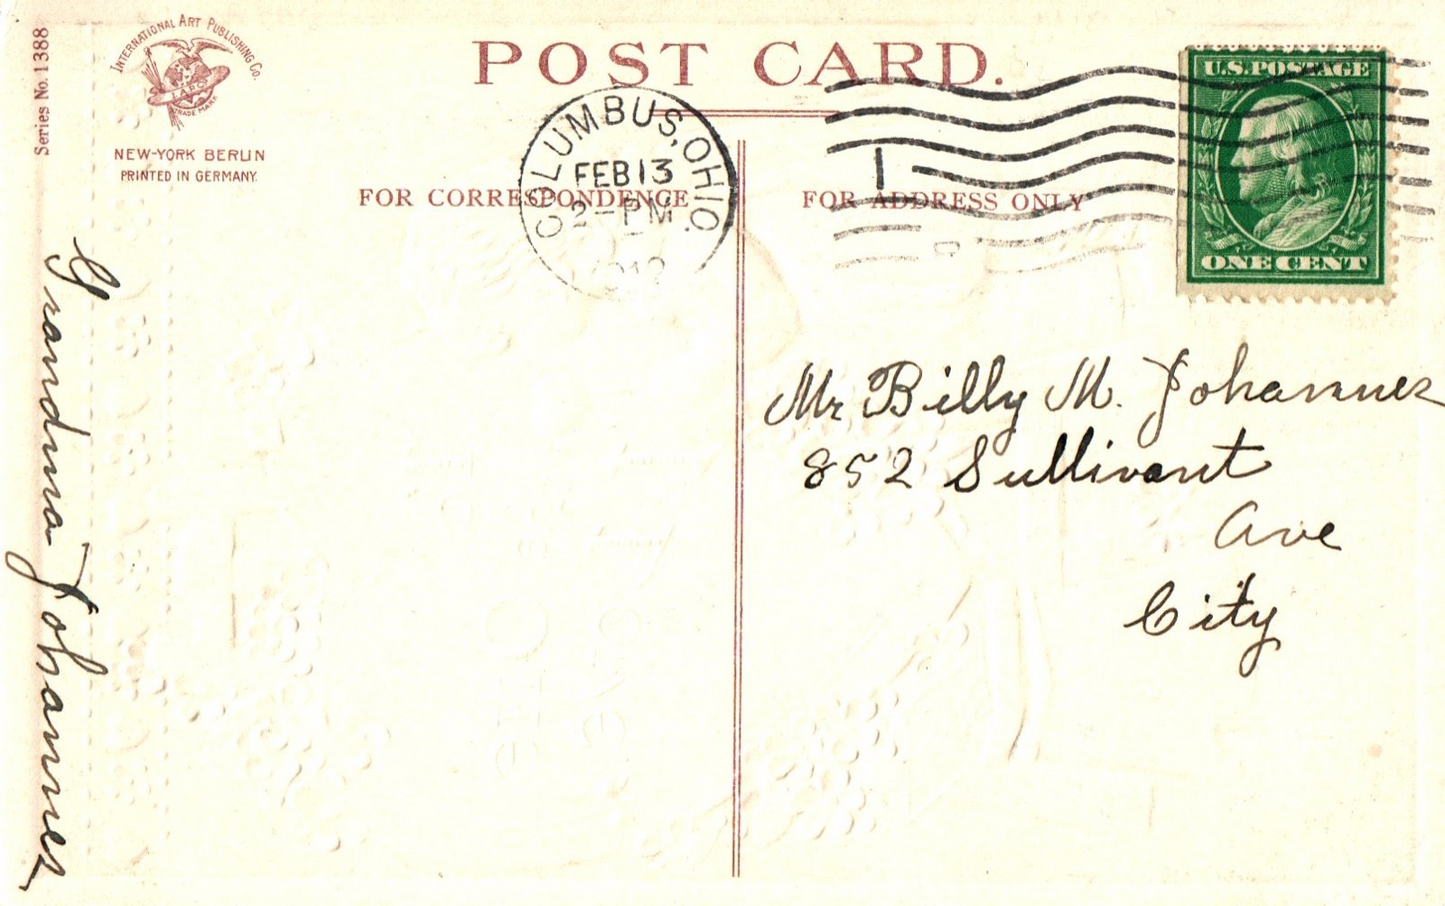 INTERNATIONAL ART PUBLISHING CO.
I.A.P.C.
TRADE MARK
NEW-YORK BERLIN
PRINTED IN GERMANY.
Series No. 1388
POST CARD.
FOR CORRESPONDENCE
FOR ADDRESS ONLY
COLUMBUS, OHIO.
FEB 13
2-PM
1
U.S. POSTAGE
ONE CENT
Mr Billy M. Johannes
852 Sullivant
Ave
City
Grandma Johannes